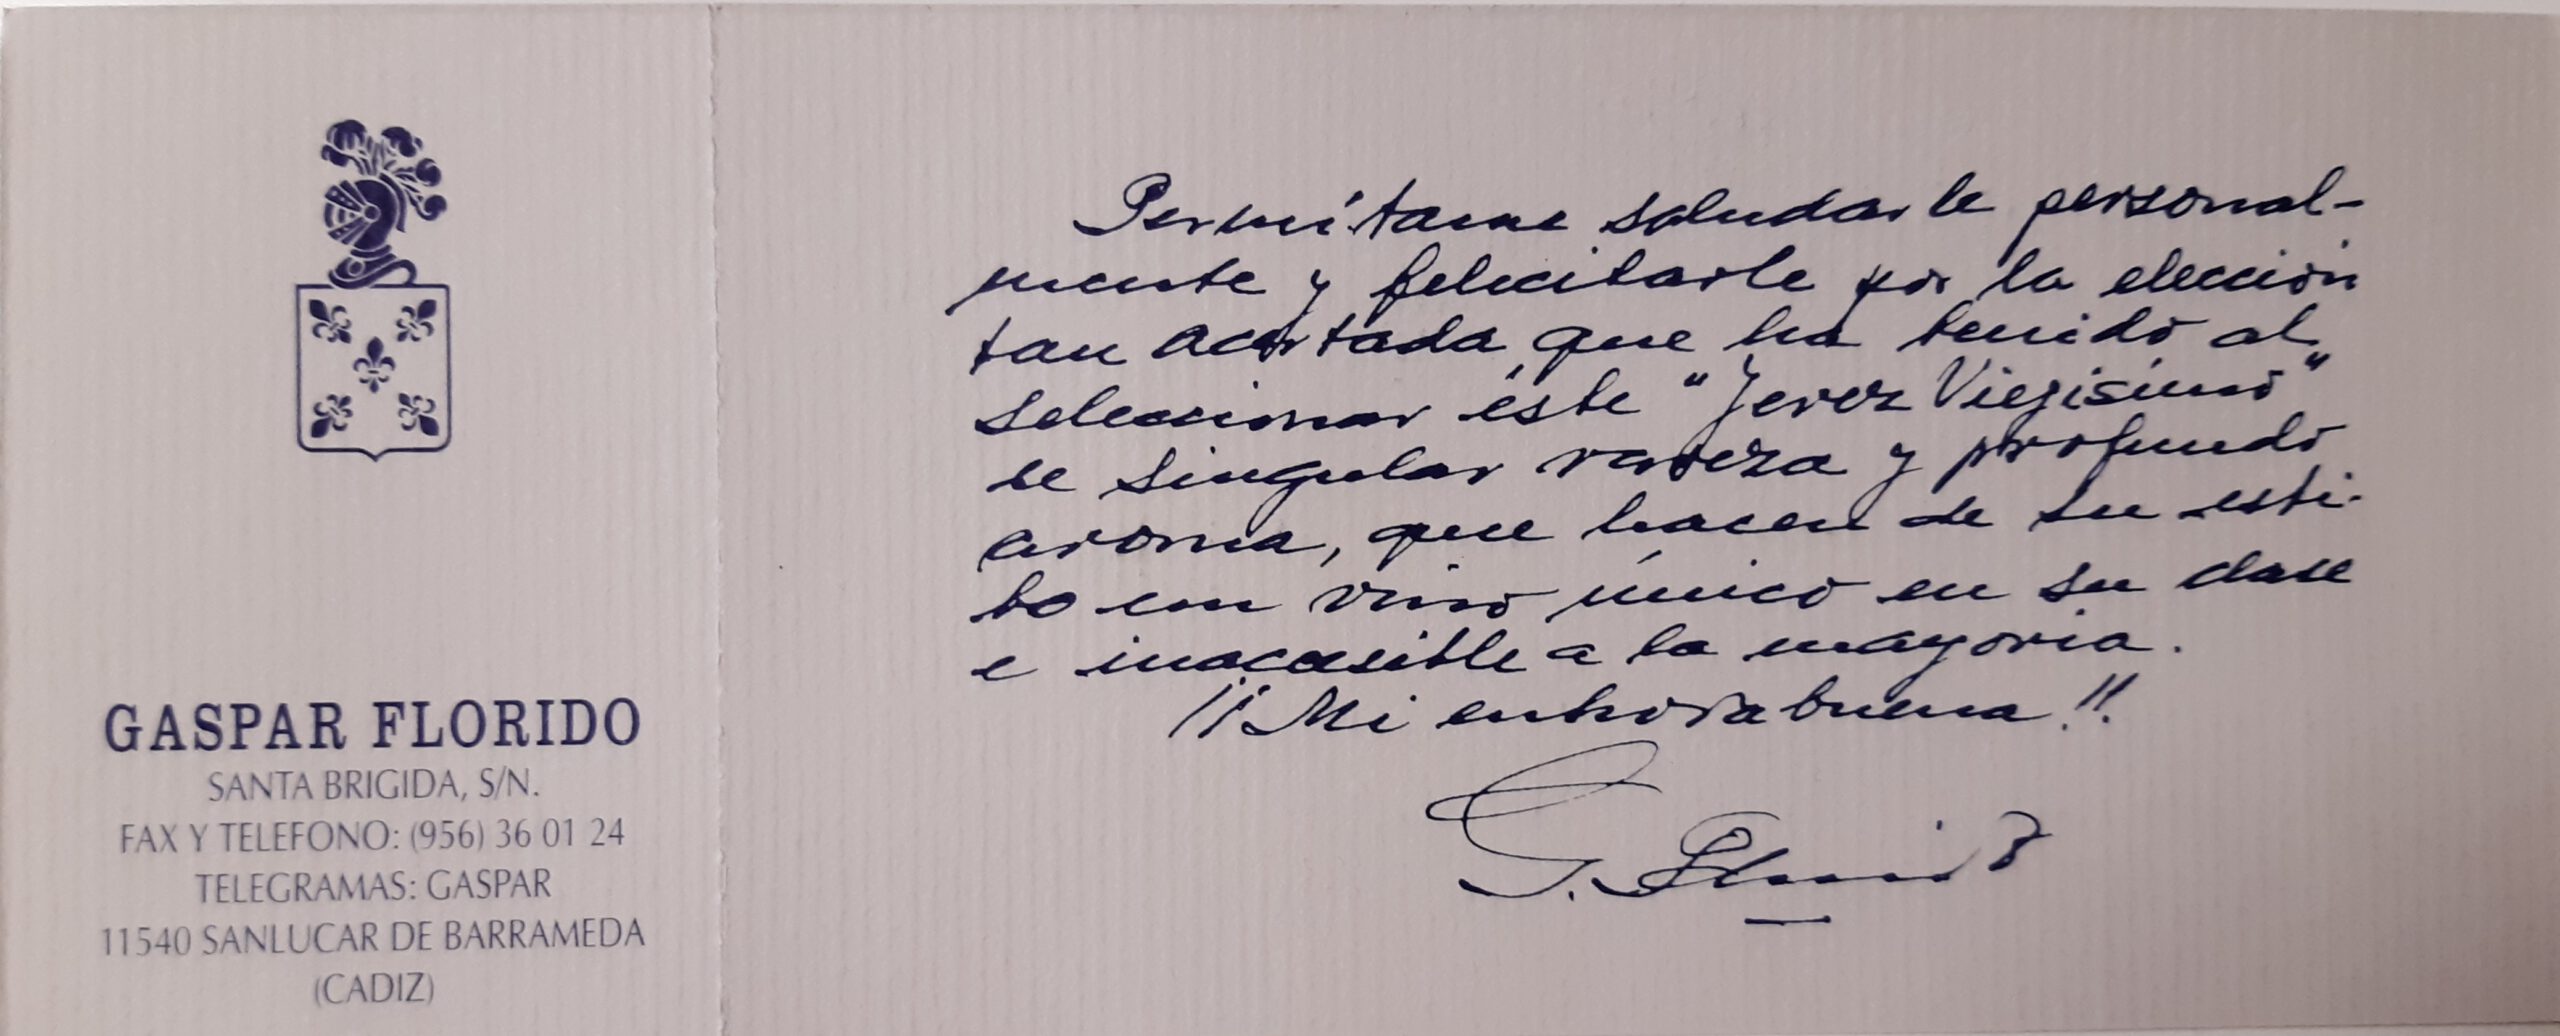 GASPAR FLORIDO
SANTA BRIGIDA, S/N.
FAX Y TELEFONO: (956) 36 01 24
TELEGRAMAS: GASPAR
11540 SANLUCAR DE BARRAMEDA
(CADIZ)
Permítame saludarle personal-
mente y felicitarle por la elección
tan acertada que ha tenido al
seleccionar éste "Jerez Viejísimo"
de singular rareza y profundo
aroma, que hacen de su esti-
lo un vino único en su clase
e inaccesible a la mayoria.
¡¡Mi enhorabuena!!
G. Florido